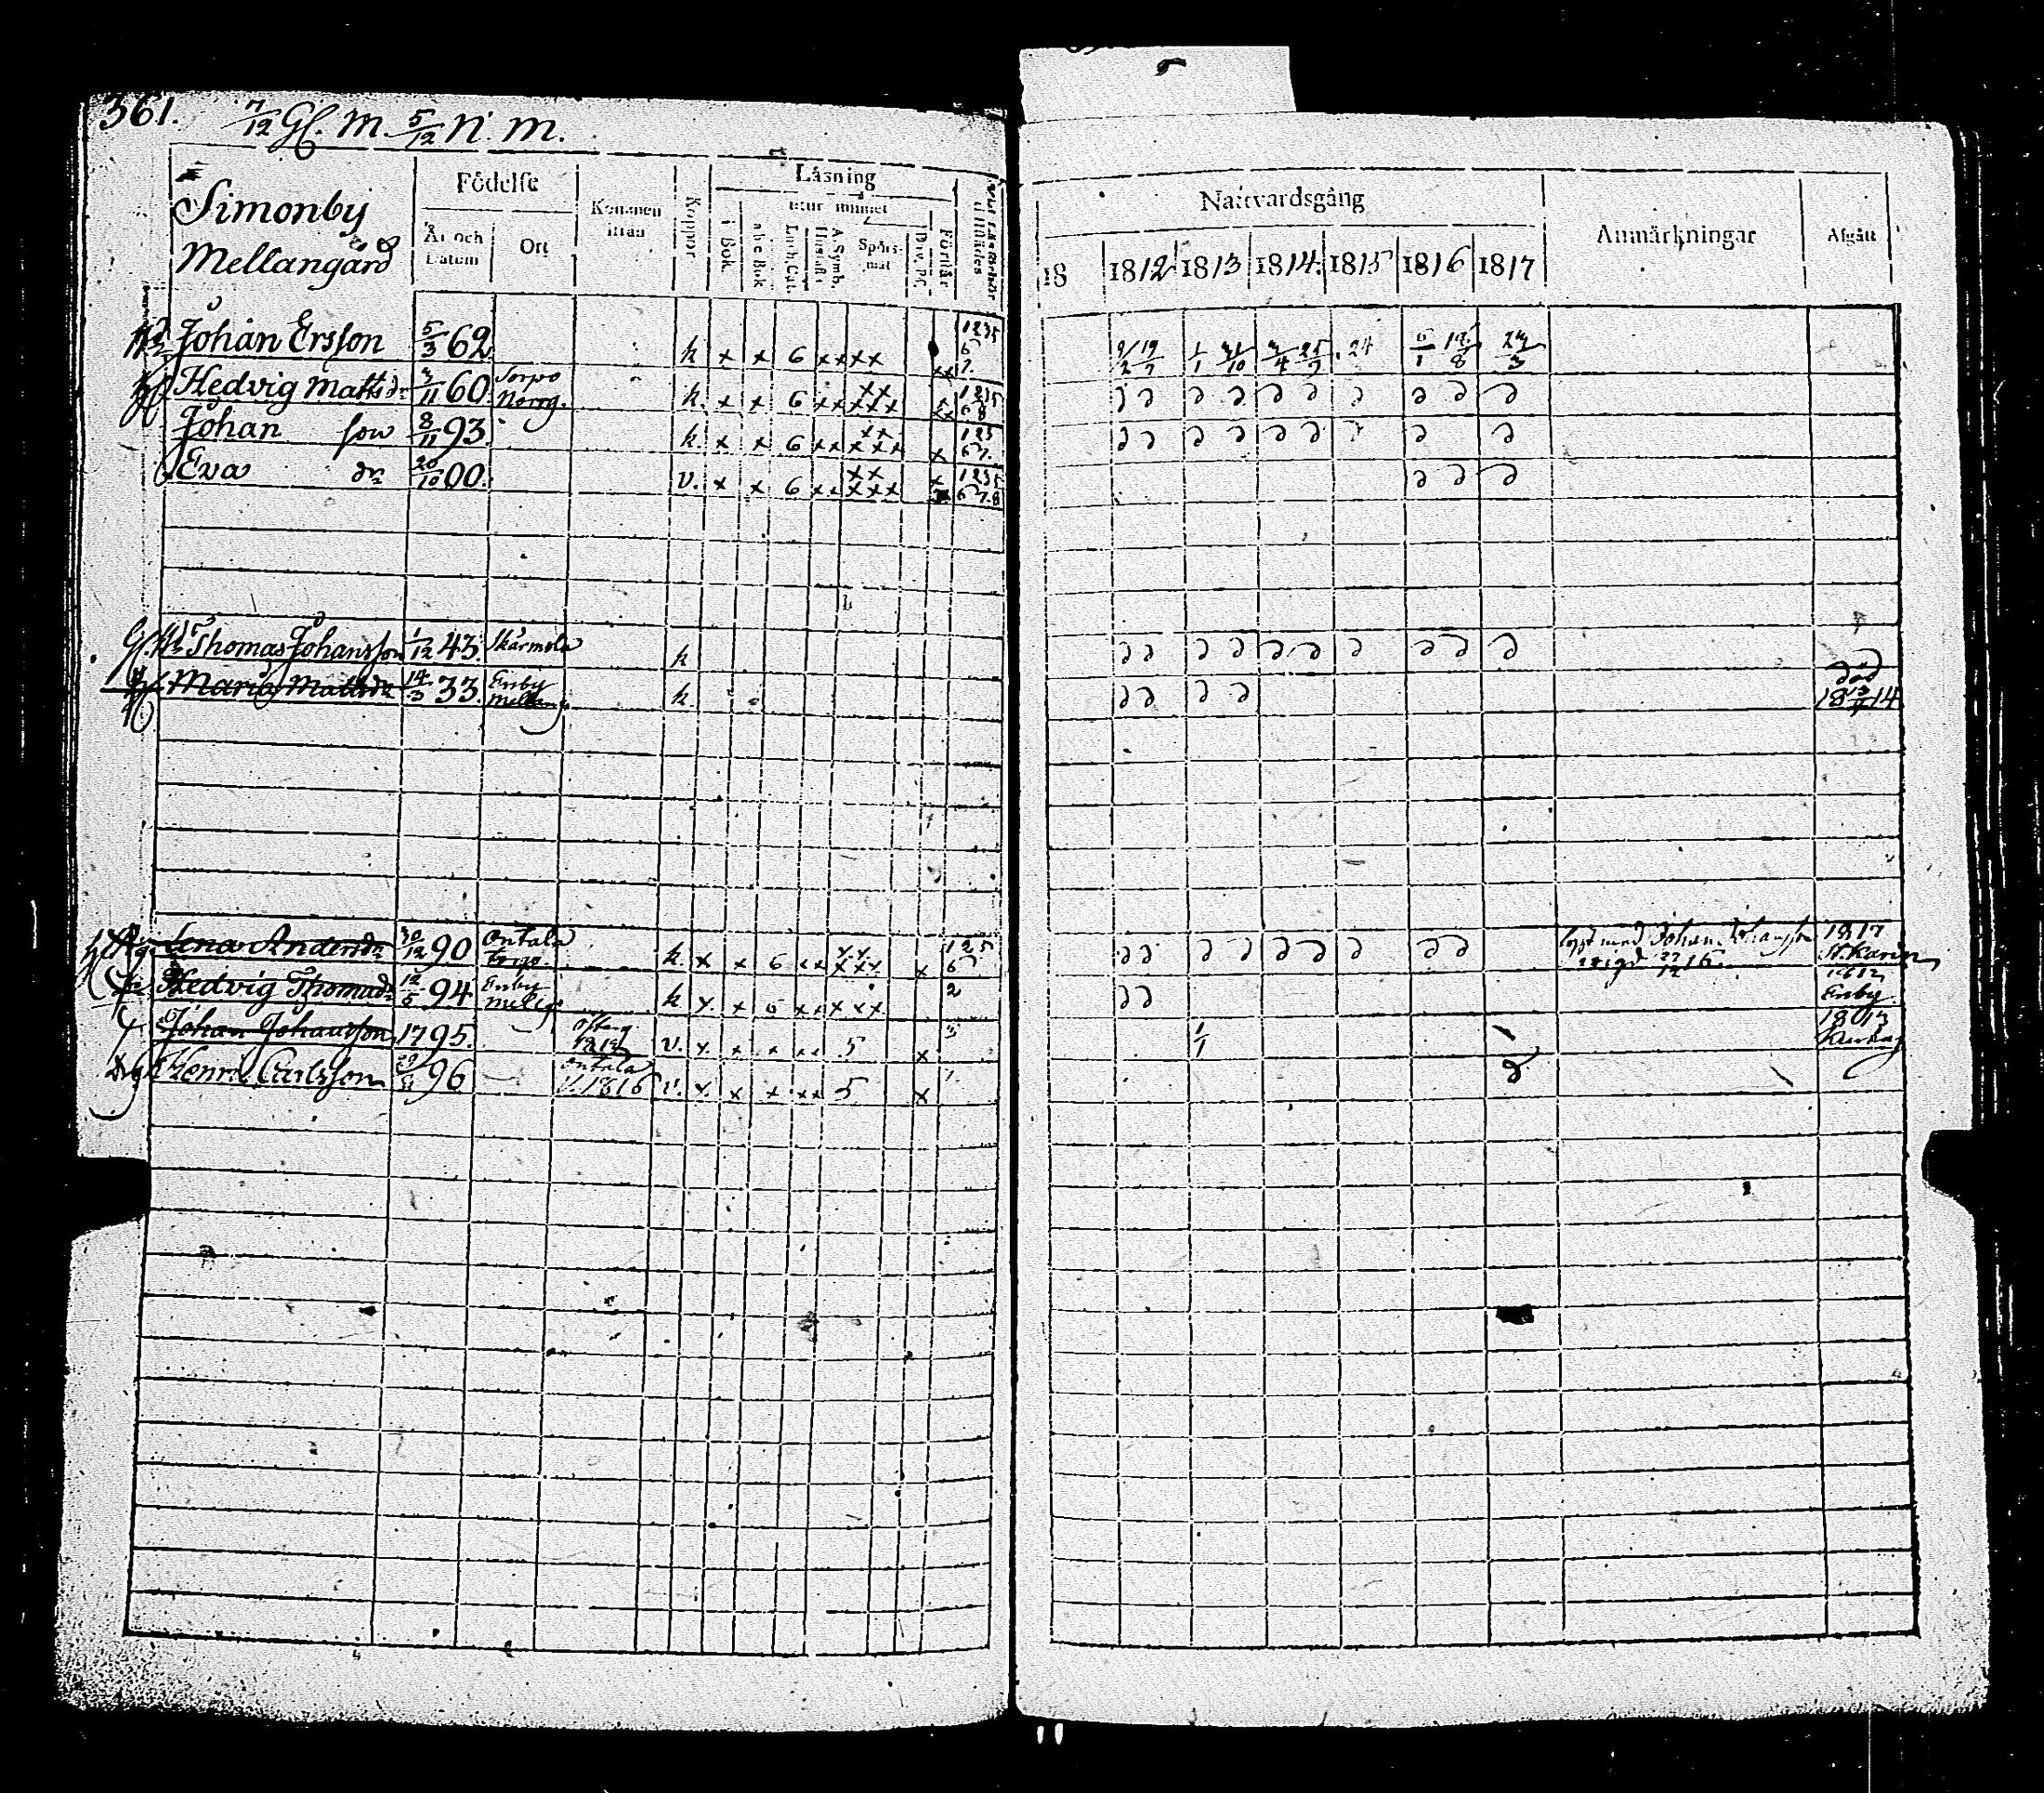 361. 7/12 Gl. m. 5/12 n. m.
Simonby
Mellangård
Födelse
År och Datum
Ort
Kommen ifrån
Koppor
Läsning
utur minnet
i Bok
abc Bok
Luth. Cat.
Hustafl.
A. Symb.
Spörs-mål
Dav. Ps.
Förstår
Nattvardsgång
18 1812 1813 1814 1815 1816 1817
Anmärkningar
Afgått
Johan Ersson 5/3 62 k x x 6 x x x x 1235 6 7
24 24/3
Hedvig Mattsdr 3/11 60 Sorpo Norrg. k. x x 6 x x x x x x x 1235 6 8
Johan son 8/11 93. k x x 6 x x x x x x x x 123 6 7.
Eva dr 20/10 00. v. x x 6 x x x x x x x x 1235 6 7.8
Thomas Johansson 1/12 43. Skärmola k
Maria Mattsdr 14/3 33. Enby Mellang. k
död 18 14
Lena Andersdr 30/12 90 Ontala k. x x 6 x x x x x x x x 125 6
lyst med Johan Johansson
vigd 16
1817 St. Karin
Hedvig Thomasdr 12/5 94 Enby Mellg. k x. x 6 x x x x x 2
1812 Enby
Johan Johansson 1795. v. x. x x x x 5 x 3
1/1
1813
Henric Carlsson 96 — Ontala 1816 v. x. x x x x 5 x 1